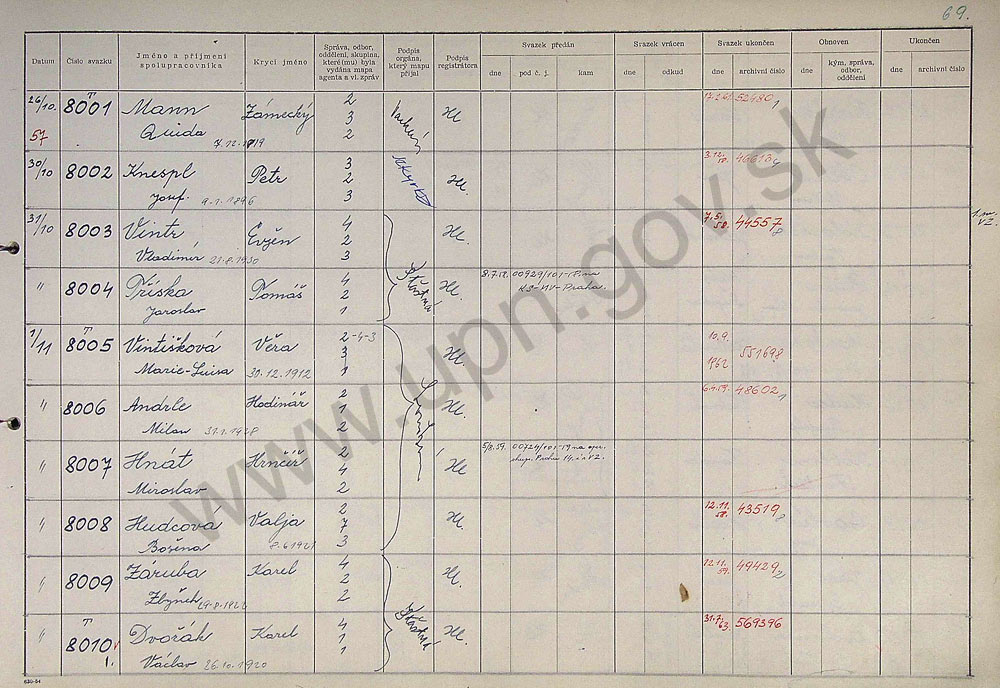 69.
Datum Číslo svazku Jméno a příjmení spolupracovníka Krycí jméno Správa, odbor, oddělení, skupina, které(mu) byla vydána mapa agenta a vl. zpráv Podpis orgána, který mapu přijal Podpis registrátora Svazek předán Svazek vrácen Svazek ukončen Obnoven Ukončen
dne pod č. j. kam dne odkud dne archivní číslo dne kým, správa, odbor, oddělení dne archivní číslo
26/10. T 8001 Mann Zámecký 2 3 2 Hl 52180 1
57 Quida 7.12.1919
30/10 8002 Knespl Petr 3 2 3 Hl.
Josef. 9.1.1896
31/10 8003 Vintr Evžen 4 2 3 Hl. 7.5. 58. 44557 8
Vladimír 21.8.1930
" 8004 Příska Tomáš 4 2 1 Šťastná Hl. 8.7.58. 00929/101-58 na
Jaroslav KS-MV-Praha.
1/11 T 8005 Vintišková Věra 2-4-3 3 1 Hl. 10.9. 1962 551698
Marie-Luisa 30.12.1912
" 8006 Andrle Hodinář 2 1 2 Hl. 48602 1
Milan 31.1.1928
" 8007 Hnát Hrnčíř 2 4 2 Hl. 5/8.59. 00724/101-59 na oper.
Miroslav skup. Praha
" 8008 Hudcová Valja 2 7 3 Hl. 12.11. 58. 43519 8
Božena 8.6.1921
" 8009 Záruba Karel 4 2 2 Hl. 12.11. 59. 49429 2
Zbyněk
" T 8010 Dvořák Karel 4 1 1 Šťastná Hl. 31.7. 63. 569396
1. Václav 26.10.1920
630-54
www.upn.gov.sk